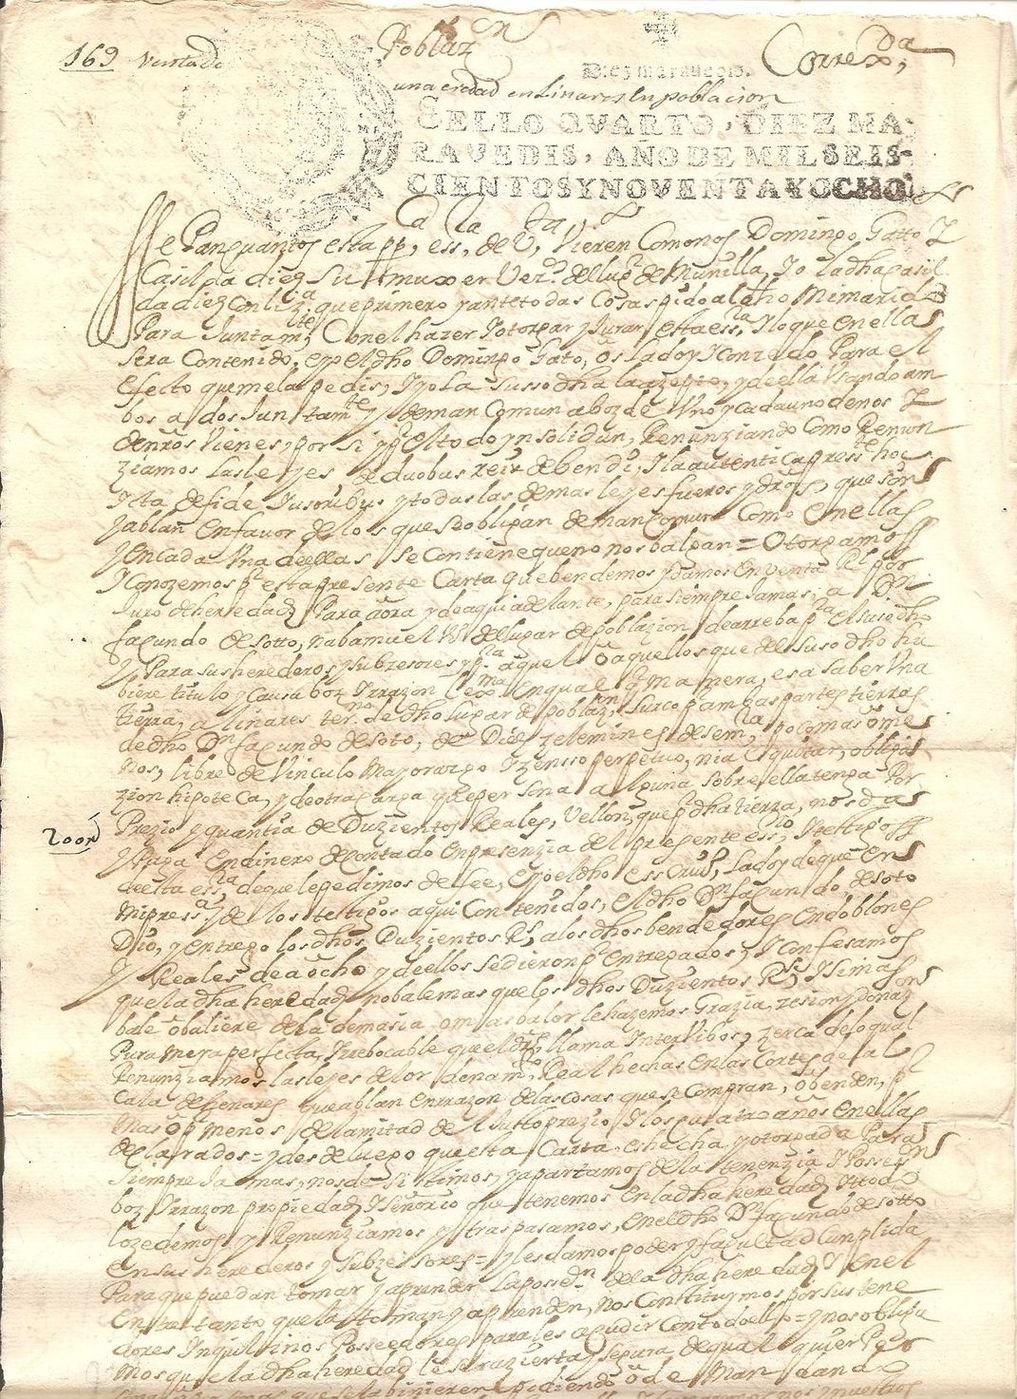 169 Venta de
Poblaz.on
Corre.da
Diez maravedis.
una eredad en Linares En poblacion
SELLO QVARTO, DIEZ MA-
RAVEDIS, AÑO DE MIL SEIS-
CIENTOS Y NOVENTA Y OCHO.
Se Pan quantos esta pp.ca ess.ra de V.ta Vieren Como nos Domingo Gatto Y
Casilda diez Su muxer Vez.os del lug.r de Munilla, Yo la dha Casil
da diez Con liz.a que primero y ante todas Cosas pido al dho Mi marido
Para Juntam.te Con el hazer Y otorgar y Jurar esta ess.ra Y lo que en ella
Sera Contenido, e yo el dho Domingo Gato, os la doy Y Conzedo Para el
efecto que me la pedis, Y yo La Suso dha la azepto, y de ella Usando am
bos a dos Juntam.te y de man Comun a boz de Uno y Cada uno de nos Y
de nros Vienes, por Si y p.r el todo yn solidun, Renunziando Como Renun
ziamos las leyes de duobus reix debendi, Y la autentica press.te hoc
Yta de fide Jusoribus y todas las demas leyes fueros y dros, que Son
Y ablan en favor de los que Se obligan de man Comun Como en ellas
Y en Cada Una de ellas Se Contiene que no nos balgan = Otorgamos
Y Conozemos p.r esta presente Carta que bendemos y damos en Venta Rl por
Juro de heredad Para aora y de aqui adelante, para siempre Jamas, a D.n
facundo de Sotto, V.o del lugar de poblazion de arreba p.a el Suso dho
Y Para sus herederos y Subzesores y p.ra aquel o aquellos que del Suso dho hu
biere titulo y Causa boz Y rrazon en qualq.r manera, es a saber Una
tierra, a linares ter.no de dho lugar de poblaz.on Surco p.r ambas partes tierras
de dho D.n facundo de Soto, de Diez zelemines de sem.ra poco mas o me
nos, libre de Vinculo Mayorazgo Y zensso perpetuo, ni al quitar, obliga
zion hipoteca, y de otra Carga que persona alguna sobre ella tenga Por
200 rs
Prezio y quantia de Duzientos Reales, Vellon, que p.r dha tierra, nos da
Y Paga En dinero de Contado En presenzia del presente ess.no y testigos
de esta ess.ra de que le pedimos de fee, e yo el dho ess.no la doy de que en
mi press.a y de los testigos aqui Contenidos, el dho D.n facundo de Soto
Dio, y entrego los dhos Duzientos Rs, a los dhos bendedores En doblones
Y Reales de a ocho y de ellos Se dieron p.r entregados, Y Confesamos
que la dha heredad no bale mas que los dhos Duzientos Rs, Y Si mas
bale o baliere de la demasia o mas balor le hazemos Grazia, zesion y donaz.on
Pura Mera perfecta Yrrebocable que el dro llama Inter Vibos, zerca de lo qual
Renunziamos las leyes del ordenam.to Real hechas En las Cortes de al
Cala de henares que ablan en razon de las Cosas que se Compran, o benden, p.r
mas o menos de la mitad del Justo prezio, Y los quatro años en ellas
declarados = y desde luego que esta Carta es hecha y otorgada Para
Siempre Jamas, nos de Sistimos, y apartamos de la tenenzia Y Possess.on
boz Y rrazon propiedad Y Señorio que tenemos En la dha heredad Y todo
lo zedemos y Renunziamos y traspasamos, en el dho D.n facundo de Sotto
en sus herederos y Subzesores = y les damos poder y facultad Cumplida
Para que puedan tomar y aprender la poses.on de la dha heredad Y en el
Entretanto que la toman y aprenden, nos Constituymos por sus tene
dores Ynquilinos Posseedores para les acudir Con todo ello = y nos obliga
mos que la dha heredad le sera zierta y Segura de qual quier Per